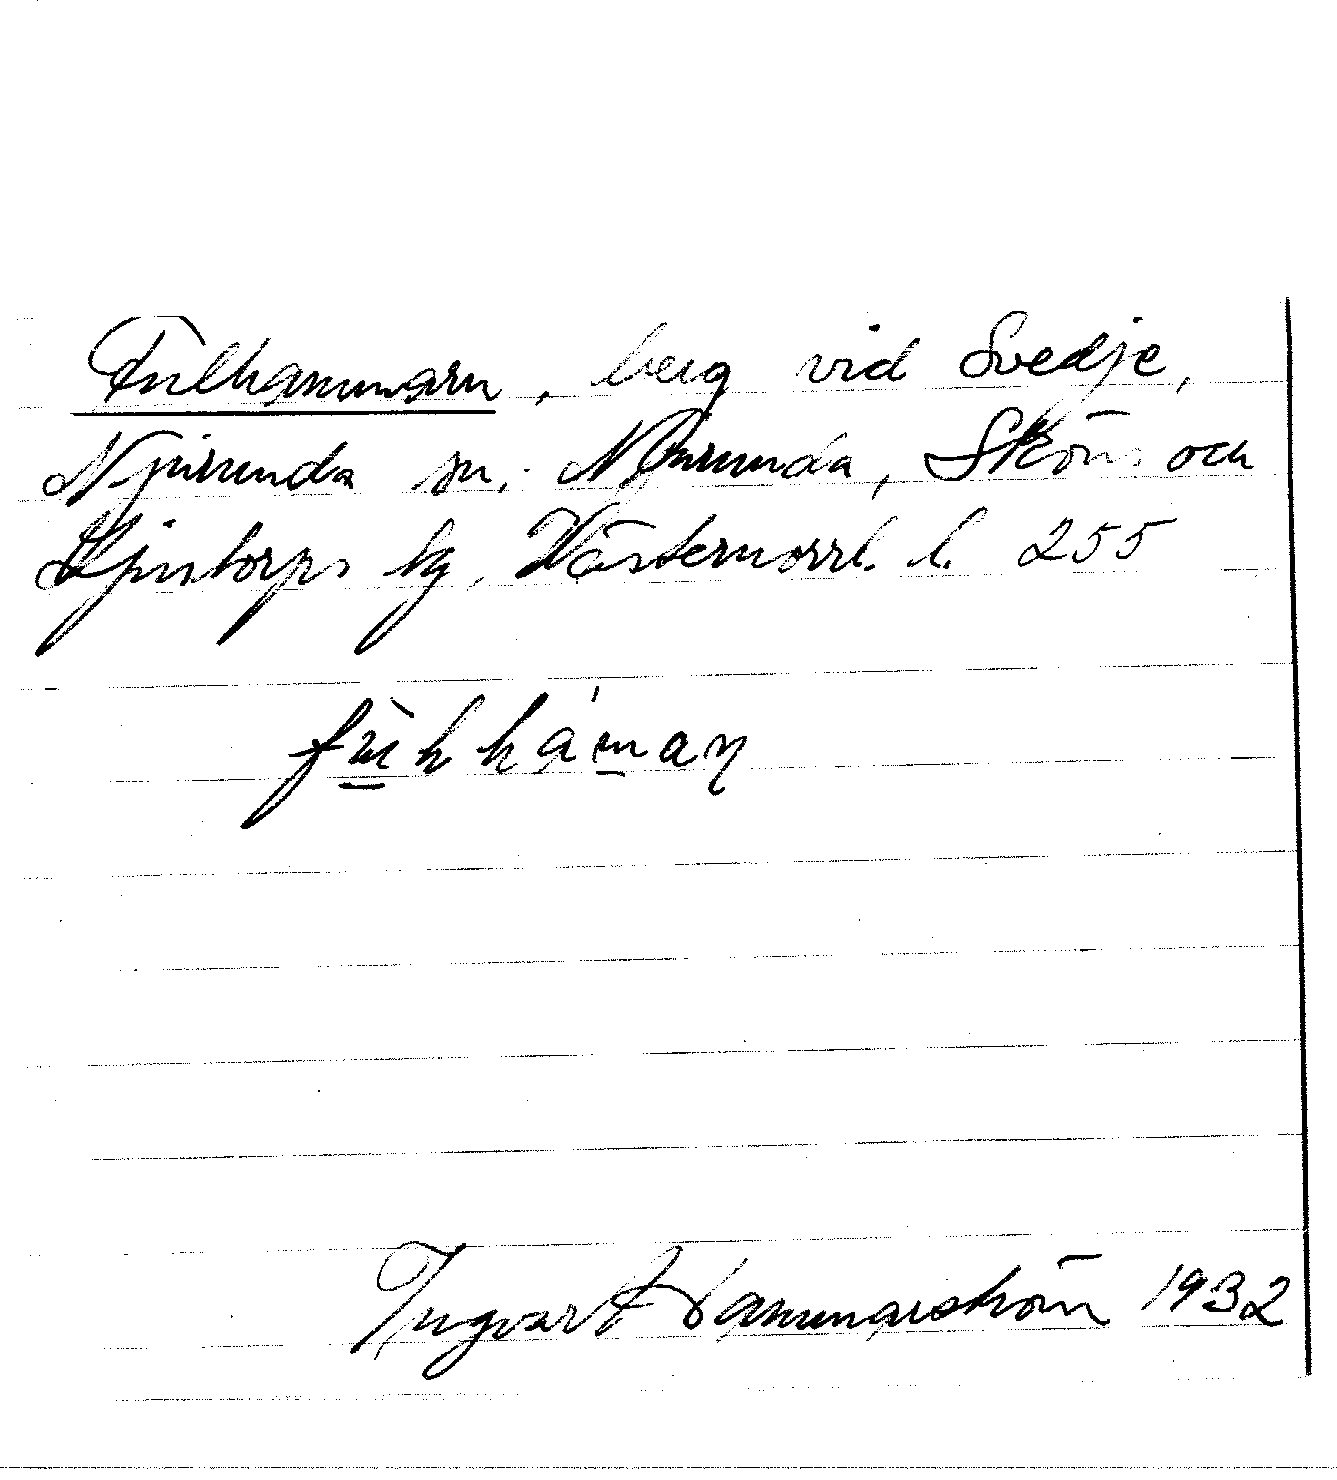 Fulhammarn, berg vid Svedje,
Njurunda sn, Njurunda, Sköns och
Ljustorps tg, Västernorrl. l. 255
Ingvar Hammarström 1932